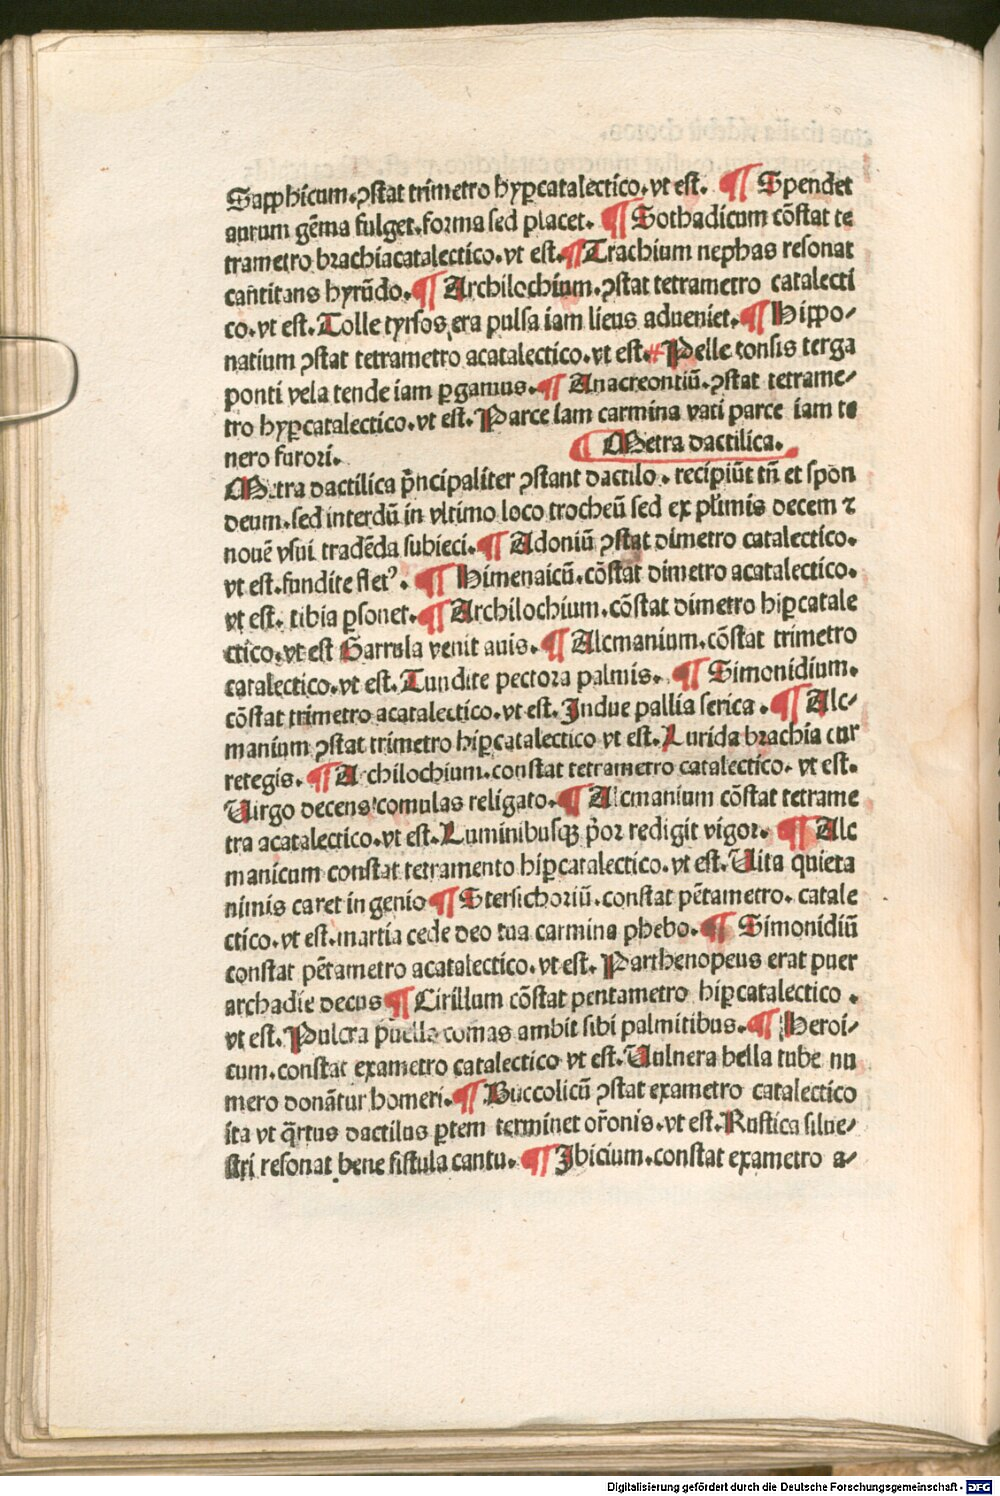 Sapphicum.ꝯstat trimetro hyꝑcatalectico.vt est. ¶ Spendet
aurum gēma fulget.forma sed placet. ¶ Sothadicum cōstat te
trametro brachiacatalectico.vt est.¶ Trachium nephas resonat
cantitans hyrūdo.¶ Archilochium.ꝯstat tetrametro catalecti
co.vt est.Tolle tyrsos era pulsa iam lieus adueniet.¶ Hippo⸗
natium ꝯstat tetrametro acatalectico.vt est. Pelle tonsis terga
ponti vela tende iam ꝑgamus.¶ Anacreontiū.ꝯstat tetrame⸗
tro hyꝑcatalectico.vt est.Parce iam carmina vati parce iam te
nero furori.
¶ Metra dactilica.
Metra dactilica p̄ncipaliter ꝯstant dactilo. recipiūt tn̄ et spon
deum.sed interdū in vltimo loco trocheū sed ex pl̄imis decem ꝛ
nouē vsui tradēda subieci.¶ Adoniū ꝯstat dimetro catalectico.
vt est.fundite flet?. ¶ Himenaicū.cōstat dimetro acatalectico.
vt est. tibia ꝑsonet.¶ Archilochium.cōstat dimetro hiꝑcatale
ctico.vt est Garrula venit auis.¶ Alcmanium.cōstat trimetro
catalectico.vt est.Tundite pectora palmis. ¶ Simonidium.
cōstat trimetro acatalectico.vt est.Indue pallia serica.¶ Alc⸗
manium ꝯstat trimetro hiꝑcatalectico vt est.Lurida brachia cur
retegis.¶ Archilochium.constat tetrametro catalectico. vt est.
Uirgo decens comulas religato.¶ Alcmanium cōstat tetrame
tra acatalectico.vt est.Luminibusqꝫ p̄or redigit vigor. ¶ Alc
manicum constat tetramento hiꝑcatalectico.vt est.Uita quieta
nimis caret ingenio ¶ Stersichoriū.constat pētametro. catale
ctico.vt est.martia cede deo tua carmina phebo.¶ Simonidiū
constat pētametro acatalectico.vt est. Parthenopeus erat puer
archadie decus ¶ Cirillum cōstat pentametro hiꝑcatalectico .
vt est.Pulcra puella comas ambit sibi palmitibus.¶ Heroi⸗
cum.constat exametro catalectico vt est.Uulnera bella tube nu
mero donātur homeri.¶ Buccolicū ꝯstat exametro catalectico
ita vt q̄rtus dactilus ꝑtem terminet or̄onis.vt est.Rustica silue⸗
stri resonat bene fistula cantu.¶ Ibicium.constat exametro a⸗
Digitalisierung gefördert durch die Deutsche Forschungsgemeinschaft - DFG